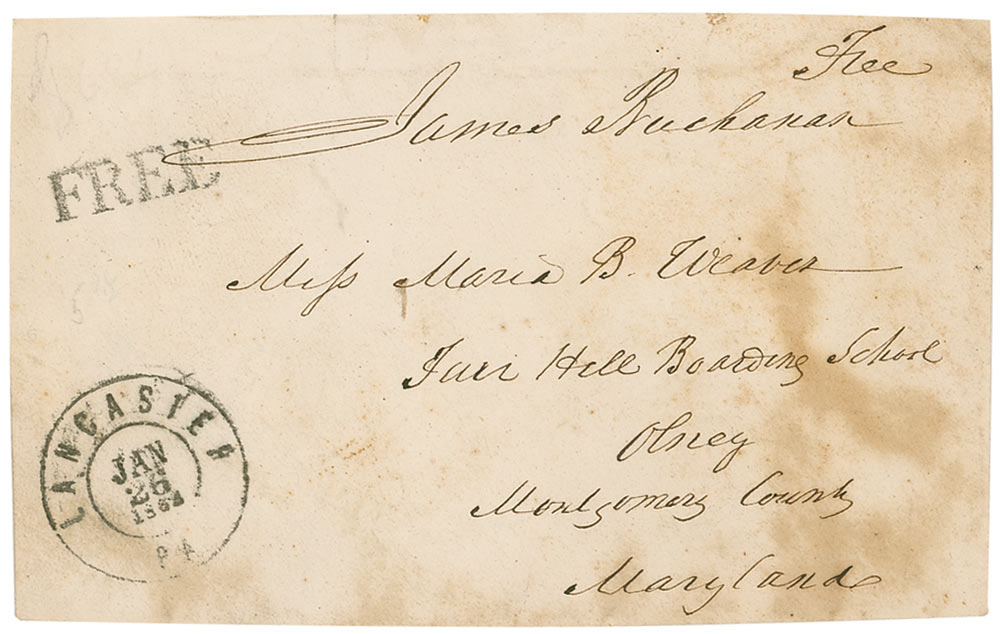 Free
James Buchanan
FREE
Miss Maria B. Weaver
Fair Hill Boarding School
Olney
Montgomery County
Maryland
LANCASTER
JAN
26
1862
PA